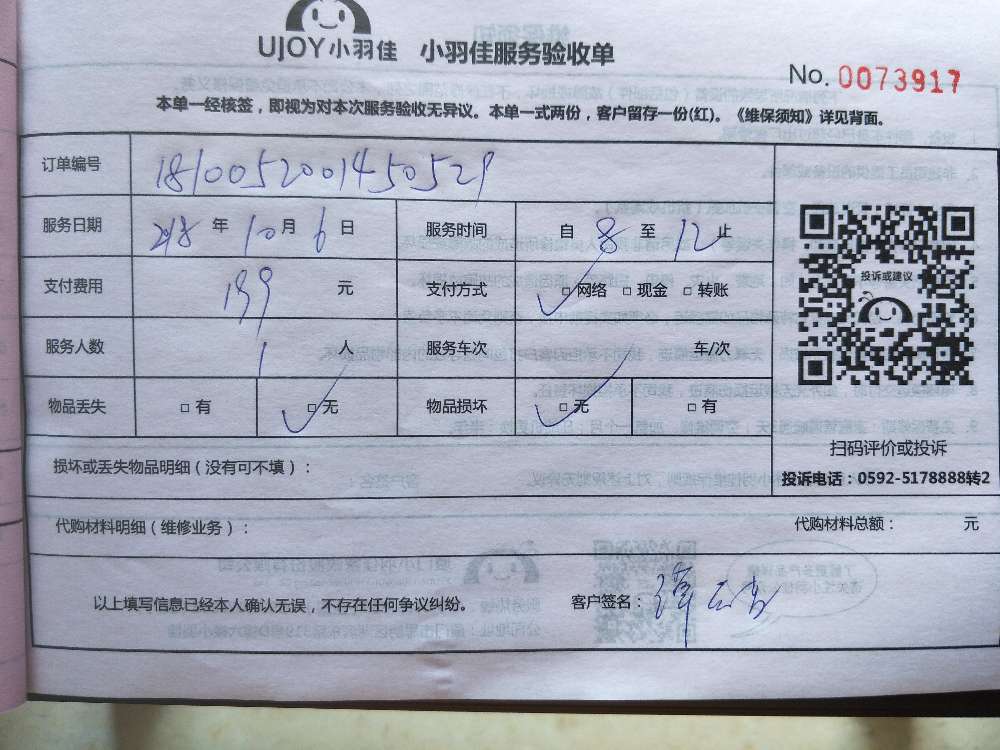 UJOY小羽佳 小羽佳服务验收单
No. 0073917
本单一经核签，即视为对本次服务验收无异议。本单一式两份，客户留存一份(红)。《维保须知》详见背面。
订单编号 1810052001450529
服务日期 218 年 10 月 6 日 服务时间 自 8 至 12 止
支付费用 199 元 支付方式 □ 网络 □ 现金 □ 转账
服务人数 1 人 服务车次 车/次
物品丢失 □ 有 □ 无 物品损坏 □ 无 □ 有
投诉或建议
扫码评价或投诉
投诉电话：0592-5178888转2
损坏或丢失物品明细（没有可不填）：
代购材料明细（维修业务）： 代购材料总额： 元
以上填写信息已经本人确认无误，不存在任何争议纠纷。 客户签名：